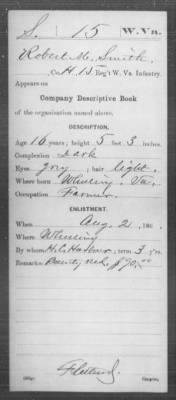 S. 15 W. Va.
Robert M. Smith,
Co. H. 15 Reg't W. Va. Infantry.
Appears on
Company Descriptive Book
of the organization named above.
DESCRIPTION.
Age 16 years; height 5 feet 3 inches.
Complexion Dark
Eyes gray; hair light.
Where born Wheeling, Va.
Occupation Farmer.
ENLISTMENT.
When Aug. 2, 186 .
Where Wheeling
By whom; term 3 y'rs.
Remarks:
Copyist.